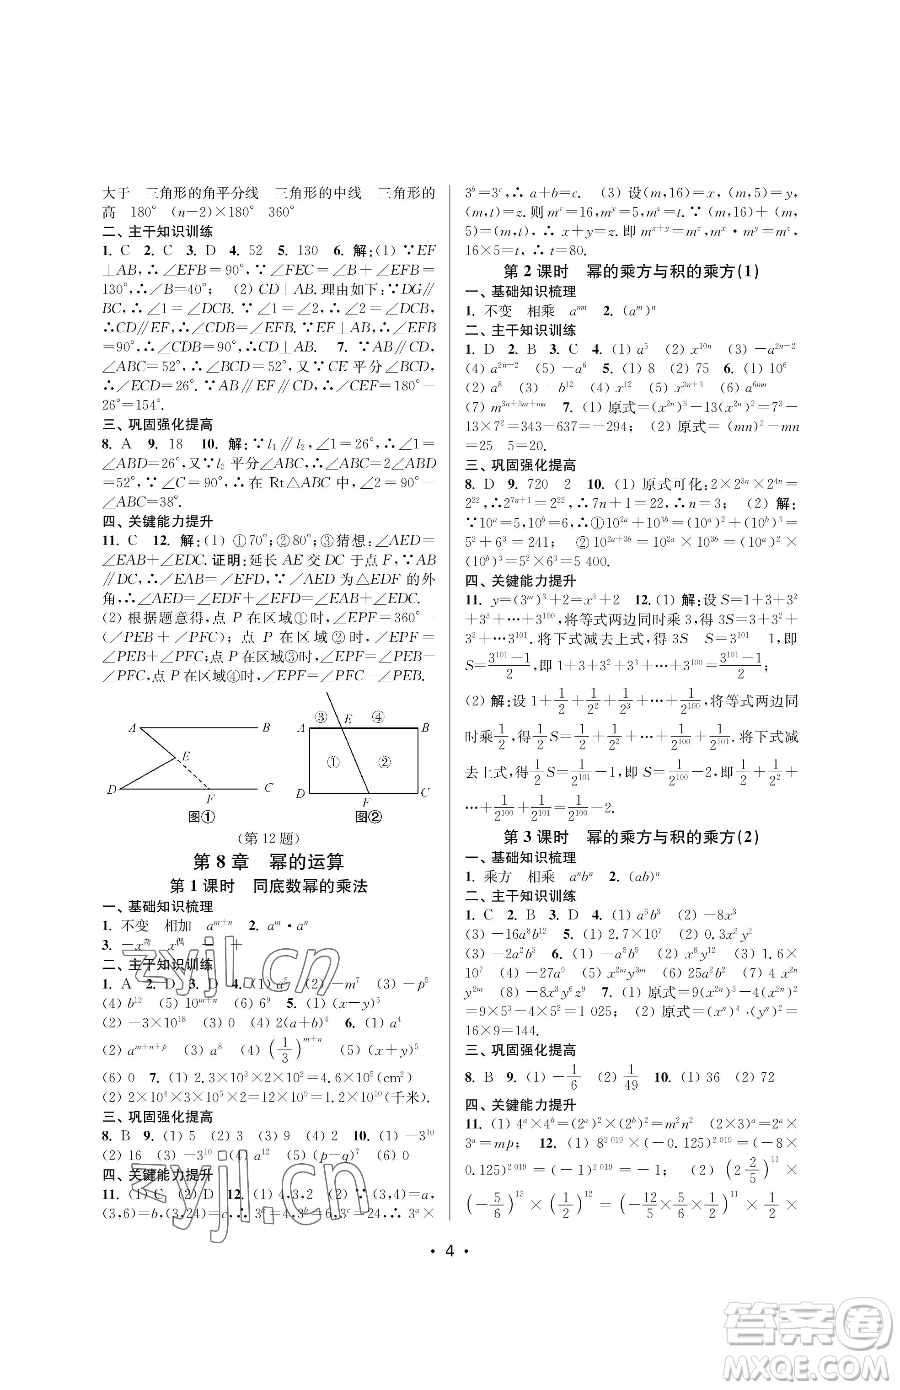 大于　三角形的角平分线　三角形的中线　三角形的
高　180°　(n－2)×180°　360°
二、主干知识训练
1. C　2. C　3. D　4. 52　5. 130　6. 解:(1) ∵EF
⊥AB,∴∠EFB＝90°,∵∠GEF＝∠B＋∠EFB＝
130°,∴∠B＝40°;　(2) CD⊥AB. 理由如下:∵DG∥
BC,∴∠1＝∠DCB,∵∠1＝∠2,∴∠2＝∠DCB,
∴CD∥EF,∴∠EFB＝∠CDB,∵EF⊥AB,∴∠EFB
＝90°,∴∠CDB＝90°,∴CD⊥AB.　7. ∵AB∥CD,
∠ABC＝52°,∴∠BCD＝∠ABC＝52°,又∵CE平分∠BCD,
∴∠ECD＝26°. 又∵AB∥EF∥CD,∴∠FEC＝180°－
26°＝154°.
三、巩固强化提高
8. A　9. 18　10. 解:∵l₁∥l₂,∠1＝26°,∴∠1＝
∠ABD＝26°,又∵l₂平分∠ABC,∴∠ABC＝2∠ABD
＝52°,∵∠2＝90°,∴在Rt△ABC中,∠2＝90°－
∠ABC＝38°.
四、关键能力提升
11. C　12. 解:(1) ①70°;②80°;③猜想:∠AED＝
∠EAB＋∠EDC. 证明:延长AE交DC于点F,∵AB
∥DC,∴∠EAB＝∠EFD,∵∠AED为△EDF的外
角,∴∠AED＝∠EDF＋∠EFD＝∠EAB＋∠EDC.
(2) 根据题意得,点P在区域①时,∠EPF＝360°－
(∠PEB＋∠PFC);点P在区域②时,∠EPF＝
∠PEB＋∠PFC;点P在区域③时,∠EPF＝∠PEB－
∠PFC;点P在区域④时,∠EPF＝∠PFC－∠PEB.
A　B　E　D　F　C
图①
③　E　④　A　B　①　②　D　F　C
图②
(第12题)
第8章　幂的运算
第1课时　同底数幂的乘法
一、基础知识梳理
1. 不变　相加　a^{m＋n}　2. a^m·a^n
3. －x^奇　x^偶　－　＋
二、主干知识训练
1. A　2. D　3. D　4. (1) a^5　(2) －m^7　(3) －p^5
(4) b^{12}　(5) 10^{m＋n}　(6) 6^9　5. (1) (x－y)^5
(2) －3×10^{18}　(3) 0　(4) 2(a＋b)^4　6. (1) a^4
(2) a^{m＋n＋p}　(3) a^8　(4) (1/3)^{m＋n}　(5) (x＋y)^5
(6) 0　7. (1) 2.3×10^3×2×10^2＝4.6×10^5(cm^2)
(2) 2×10^4×3×10^3×2×10^2＝12×10^9＝1.2×10^{10}(千米).
三、巩固强化提高
8. B　9. (1) 5　(2) 3　(3) 8　(4) 3　10. (1) －3^{10}
(2) 16　(3) －3^{10}　(4) 2a^5　(5) (p－q)^7　(6) 0
四、关键能力提升
11. (1) C　(2) D　12. (1) 4,3,2　(2) ∵(3,4)＝a,
(3,6)＝b,(3,24)＝c,∴3^a＝4,3^b＝6,3^c＝24,∴3^a×
3^b＝3^c,∴a＋b＝c.　(3) 设(m,16)＝x,(m,5)＝y,
(m,t)＝z. 则m^x＝16,m^y＝5,m^z＝t. ∵(m,16)＋
(m,5)＝(m,t),∴x＋y＝z. ∴m^{x＋y}＝m^z,∴m^x·m^y＝m^z,
16×5＝t,∴t＝80.
第2课时　幂的乘方与积的乘方(1)
一、基础知识梳理
1. 不变　相乘　a^{mn}　2. (a^m)^n
二、主干知识训练
1. D　2. B　3. C　4. (1) a^5　(2) x^{10n}　(3) －a^{2n－2}
(4) a^{2n－2}　(5) －a^6　5. (1) 8　(2) 225　6. (1) 10^6
(2) a^8　(3) －b^{12}　(4) 2x^6　(5) x^{3n＋3}　(6) a^{6mn}
(7) m^{3n＋3m＋mn}　7. (1) 原式＝(x^{2n})^3－13(x^{2n})^2＝7^3－
13×7^2＝343－637＝－294;　(2) 原式＝(mn)^2－mn＝
25　5＝20.
三、巩固强化提高
8. D　9. 720　2　10. (1) 原式可化:2×2^{3n}×2^{4n}＝
2^{22},∴2^{7n＋1}＝2^{22},∴7n＋1＝22,∴n＝3;　(2) 解:
∵10^a＝5,10^b＝6,∴①10^{2a}＋10^{3b}＝(10^a)^2＋(10^b)^3＝
5^2＋6^3＝241;　②10^{2a＋3b}＝10^{2a}×10^{3b}＝(10^a)^2×
(10^b)^3＝5^2×6^3＝5 400.
四、关键能力提升
11. y＝(3^m)^3＋2＝x^3＋2　12. (1) 解:设S＝1＋3＋3^2
＋3^3＋…＋3^{100},将等式两边同时乘3,得3S＝3＋3^2＋3^3
＋…＋3^{101}. 将下式减去上式,得3S　S＝3^{101}－1,即
S＝(3^{101}－1)/2,即1＋3＋3^2＋3^3＋…＋3^{100}＝(3^{101}－1)/2;
(2) 解:设1＋1/2＋1/2^2＋1/2^3＋…＋1/2^{100},将等式两边同
时乘1/2,得1/2S＝1/2＋1/2^2＋…＋1/2^{101}. 将下式减
去上式,得1/2S＝1/2^{101}－1,即S＝1/2^{100}－2,即1＋1/2＋1/2^2＋
…＋1/2^{100}＝1/2^{100}－2.
第3课时　幂的乘方与积的乘方(2)
一、基础知识梳理
1. 乘方　相乘　a^n b^n　2. (ab)^n
二、主干知识训练
1. C　2. B　3. C　4. (1) a^5b^3　(2) －8x^3
(3) －16a^8b^{12}　5. (1) 2.7×10^7　(2) 0.3x^3y^2
(3) －2a^2b^3　6. (1) －a^5b^5　(2) x^8y^{12}　(3) 1.6×
10^7　(4) －27a^9　(5) x^{2m}y^{3m}　(6) 25a^2b^2　(7) 4x^{2n}
y^{2m}　(8) －3x^3y^6z^9　7. (1) 原式＝9(x^{2m})^3－4(x^{2m})^2
＝9×5^3－4×5^2＝1 025;　(2) 原式＝(x^n)^4·(y^n)^2＝
16×9＝144.
三、巩固强化提高
8. B　9. (1) －1/6　(2) 1/49　10. (1) 36　(2) 72
四、关键能力提升
11. (1) 4^a×4^b＝(2^a)^2×(2^b)^2＝m^2n^2　(2) (2×3)^a＝2^a×3^a
＝mp;　12. (1) 8^{2 019}×(－0.125)^{2 019}＝(－8×
0.125)^{2 019}＝(－1)^{2 019}＝－1;　(2) (2 2/5)^{11}×
(－5/6)^{13}×(1/2)^{12}＝(－12/5×5/6×1/2)^{11}×(－5/6)^2×
• 4 •
zyjl.cn
zyjl.cn
答案圈
MXQE.COM